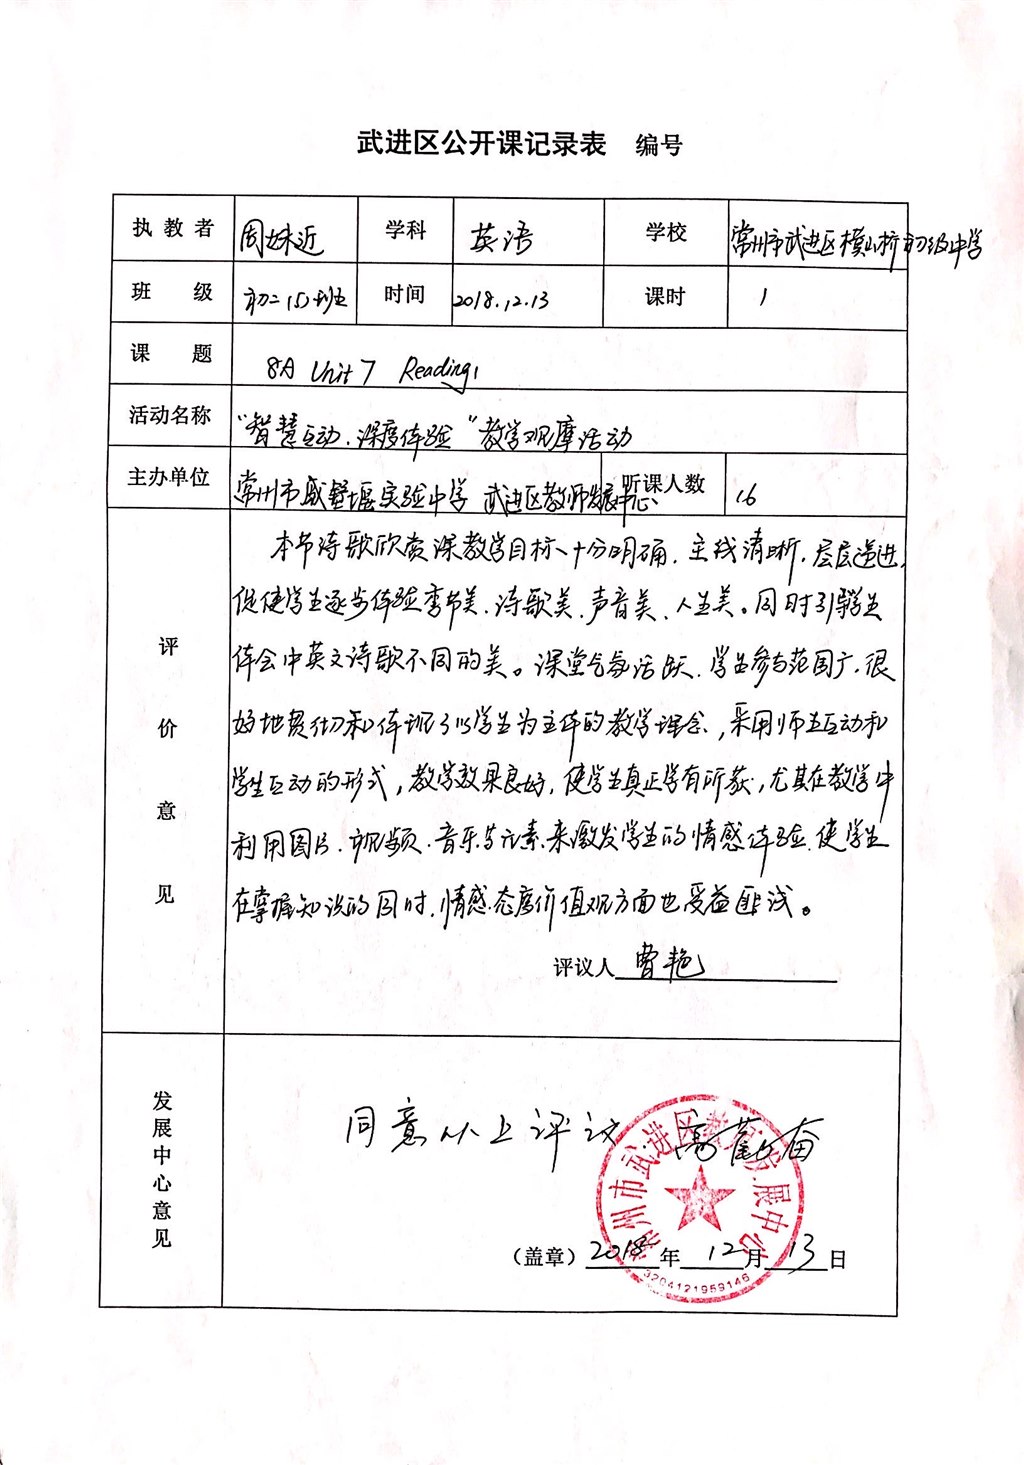 武进区公开课记录表 编号
执教者 周妹近 学科 英语 学校 常州市武进区横山桥初级中学
班级 初二(5)班 时间 2018.12.13 课时 1
课题 8A Unit 7 Reading1
活动名称 “智慧互动.深度体验”教学观摩活动
主办单位 常州市戚墅堰实验中学 武进区教师发展中心 听课人数 16
评价意见
本节诗歌欣赏课教学目标十分明确.主线清晰.层层递进,
促使学生逐步体验季节美、诗歌美、声音美、人生美。同时引导学生
体会中英文诗歌不同的美。课堂气氛活跃.学生参与范围广.很
好地贯彻和体现了以学生为主体的教学理念,采用师生互动和
学生互动的形式,教学效果良好,使学生真正学有所获,尤其在教学中
利用图片、视频、音乐等元素来激发学生的情感体验.使学生
在掌握知识的同时,情感态度价值观方面也受益匪浅。
评议人 曹艳
发展中心意见
同意以上评议
常州市武进区教师发展中心
(盖章) 2018 年 12 月 13 日
3204121959146